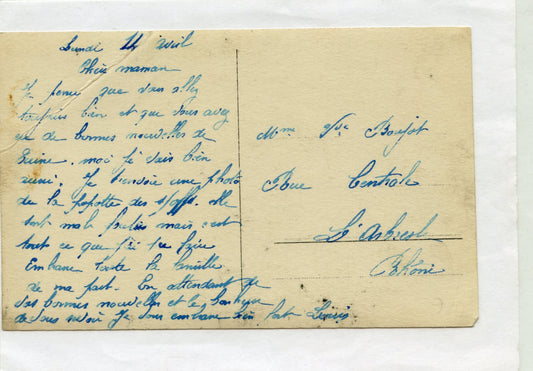 Lundi 14 avril
Chère maman
Je pense que vous allez
toujours bien et que vous avez
eu de bonnes nouvelles de
moi je vais bien
aussi. Je t'envoie une photo
de la popotte des s/off. elle
sont mal faites mais c'est
tout ce que j'ai pu faire
Embrasse toute la famille
de ma part. En attendant de
vos bonnes nouvelles et le bonheur
de vous revoir Je vous embrasse bien fort
Mme Vve
Rue Centrale
L'Arbresle
Rhône